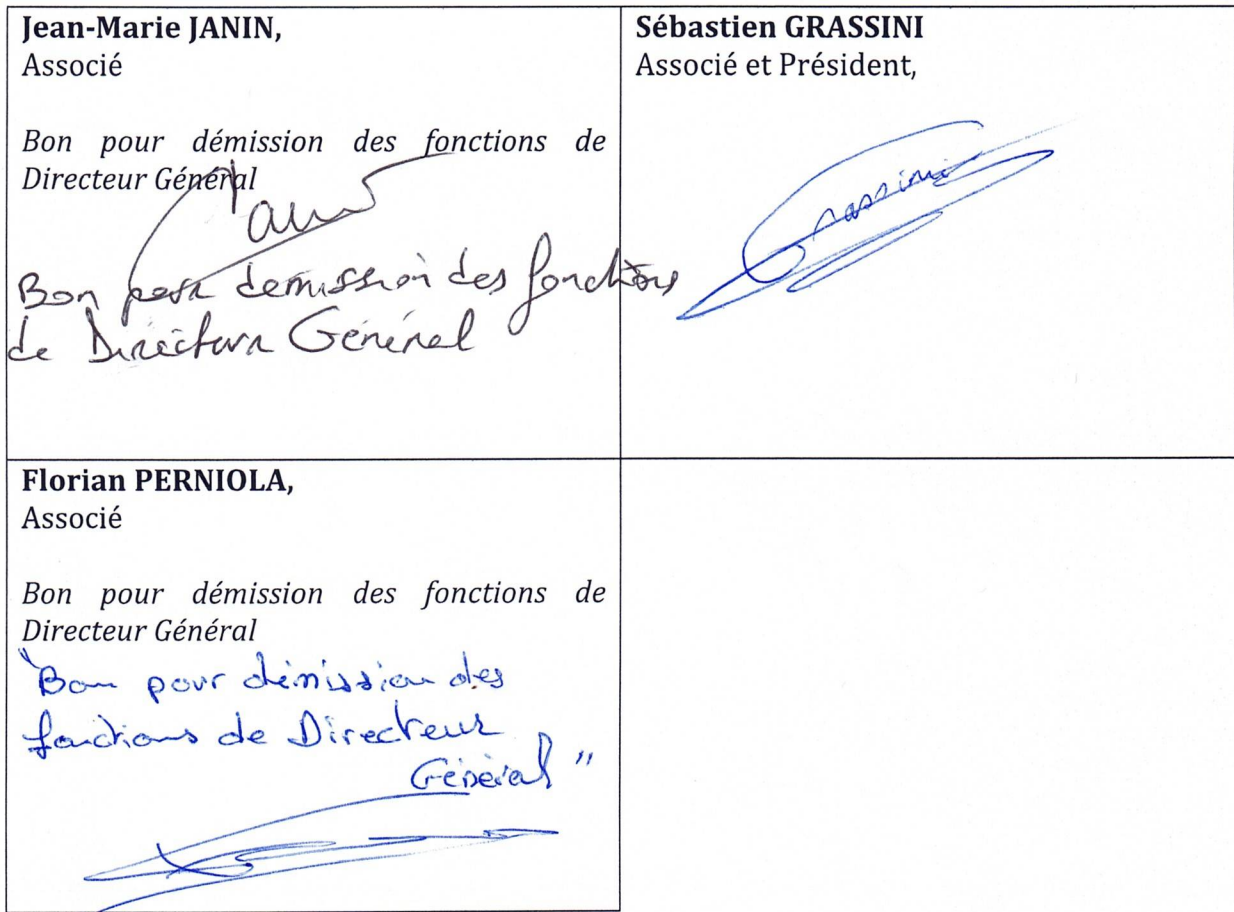 Jean-Marie JANIN,
Associé
Bon pour démission des fonctions de
Directeur Général
Bon pour demission des fonctions
de Directeur Général
Sébastien GRASSINI
Associé et Président,
Grassini
Florian PERNIOLA,
Associé
Bon pour démission des fonctions de
Directeur Général
"Bon pour démission des
fonctions de Directeur
Général"